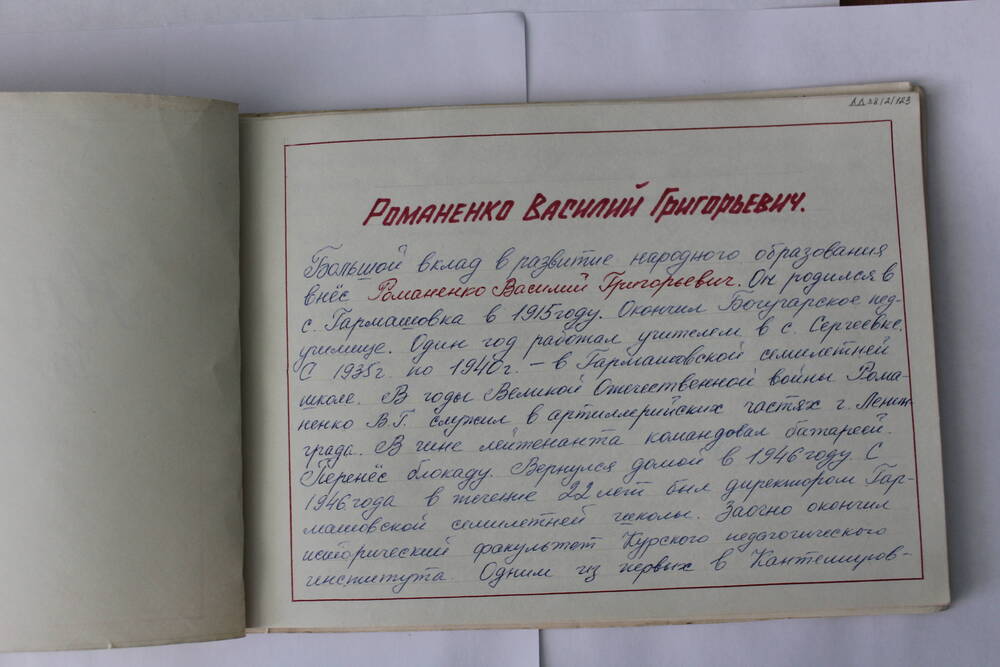 АА 38/2/123
РОМАНЕНКО ВАСИЛИЙ ГРИГОРЬЕВИЧ.
Большой вклад в развитие народного образования
внёс Романенко Василий Григорьевич. Он родился в
с. Гармашовка в 1915 году. Окончил Богучарское пед-
училище. Один год работал учителем в с. Сергеевке.
С 1935 г. по 1940 г. – в Гармашовской семилетней
школе. В годы Великой Отечественной войны Рома-
ненко В.Г. служил в артиллерийских частях г. Ленин-
града. В чине лейтенанта командовал батареей.
Перенёс блокаду. Вернулся домой в 1946 году. С
1946 года в течение 22 лет был директором Гар-
машовской семилетней школы. Заочно окончил
исторический факультет Курского педагогического
института. Одним из первых в Кантемиров-